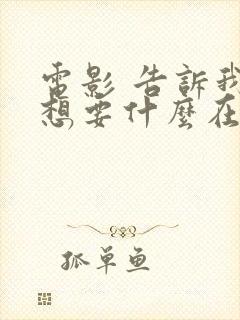 電影 告訴我
想要什麼在
孤單鱼